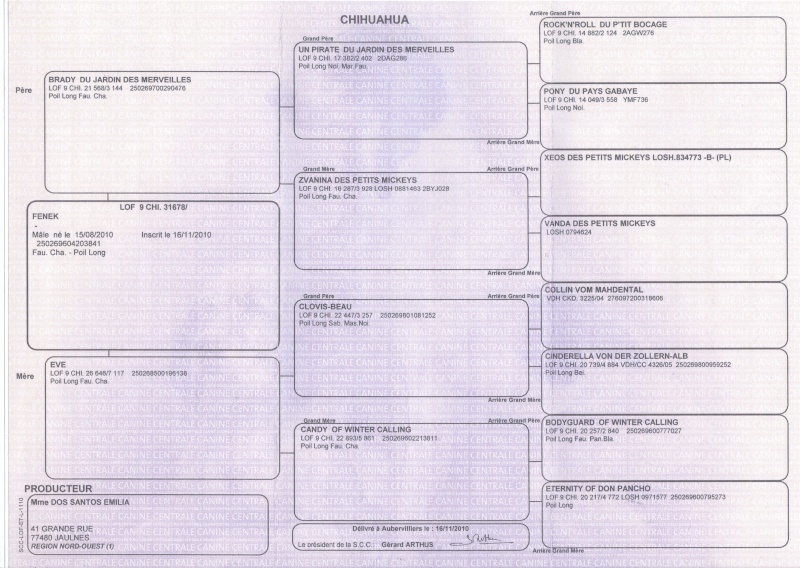 CHIHUAHUA
Père
BRADY DU JARDIN DES MERVEILLES
LOF 9 CHI. 21 568/3 144 250269700290476
Poil Long Fau. Cha.
LOF 9 CHI. 31678/
FENEK
-
Mâle né le 15/08/2010 Inscrit le 16/11/2010
250269604203841
Fau. Cha. - Poil Long
Mère
EVE
LOF 9 CHI. 26 646/7 117 250268500196138
Poil Long Fau. Cha.
Grand Père
UN PIRATE DU JARDIN DES MERVEILLES
LOF 9 CHI. 17 382/2 402 2DAG286
Poil Long Noi. Mar.Fau.
Grand Mère
ZVANINA DES PETITS MICKEYS
LOF 9 CHI. 16 287/3 929 LOSH 0881463 2BYJ028
Poil Long Fau. Cha.
Grand Père
CLOVIS-BEAU
LOF 9 CHI. 22 447/3 257 250269801081252
Poil Long Sab. Mas Noi.
Grand Mère
CANDY OF WINTER CALLING
LOF 9 CHI. 22 893/5 861 250269602213811
Poil Long Fau. Cha.
Arrière Grand Père
ROCK'N'ROLL DU P'TIT BOCAGE
LOF 9 CHI. 14 882/2 124 2AGW276
Poil Long Bla.
PONY DU PAYS GABAYE
LOF 9 CHI. 14 049/3 558 YMF736
Poil Long Noi.
Arrière Grand Mère
Arrière Grand Père
XEOS DES PETITS MICKEYS LOSH.834773 -B- (PL)
VANDA DES PETITS MICKEYS
LOSH 0794624
Arrière Grand Mère
Arrière Grand Père
COLLIN VOM MAHDENTAL
VDH CKD. 3225/04 276097200318606
CINDERELLA VON DER ZOLLERN-ALB
LOF 9 CHI. 20 739/4 884 VDH/CC 4326/05 250269800959252
Poil Long Bei.
Arrière Grand Mère
Arrière Grand Père
BODYGUARD OF WINTER CALLING
LOF 9 CHI. 20 257/2 840 250269600777027
Poil Long Fau. Pan.Bla.
ETERNITY OF DON PANCHO
LOF 9 CHI. 20 217/4 772 LOSH 0971577 250269600795273
Poil Long
Arrière Grand Mère
PRODUCTEUR
Mme DOS SANTOS EMILIA
41 GRANDE RUE
77480 JAULNES
REGION NORD-OUEST (1)
SCC-LOF-ET-L-1110
Délivré à Aubervilliers le : 16/11/2010
Le président de la S.C.C. Gérard ARTHUS